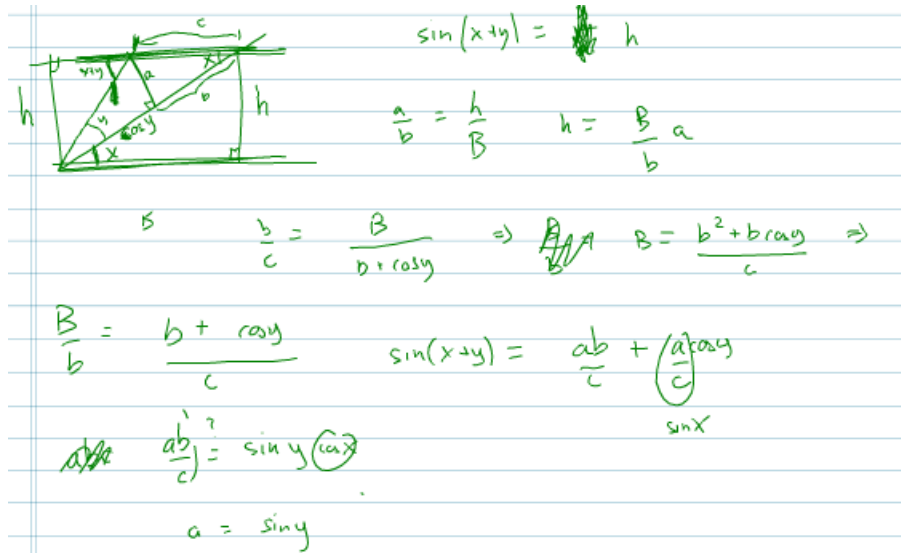 c
x+y
a
x
b
h
h
y
cosy
x
sin(x+y) = h
a/b = h/B    h = B/b a
b/c = B/(b+cosy) ⇒ B = (b²+bcosy)/c ⇒
B/b = (b + cosy)/c    sin(x+y) = ab/c + (a/c)cosy
sinx
ab/c ?= siny cosx
a = siny